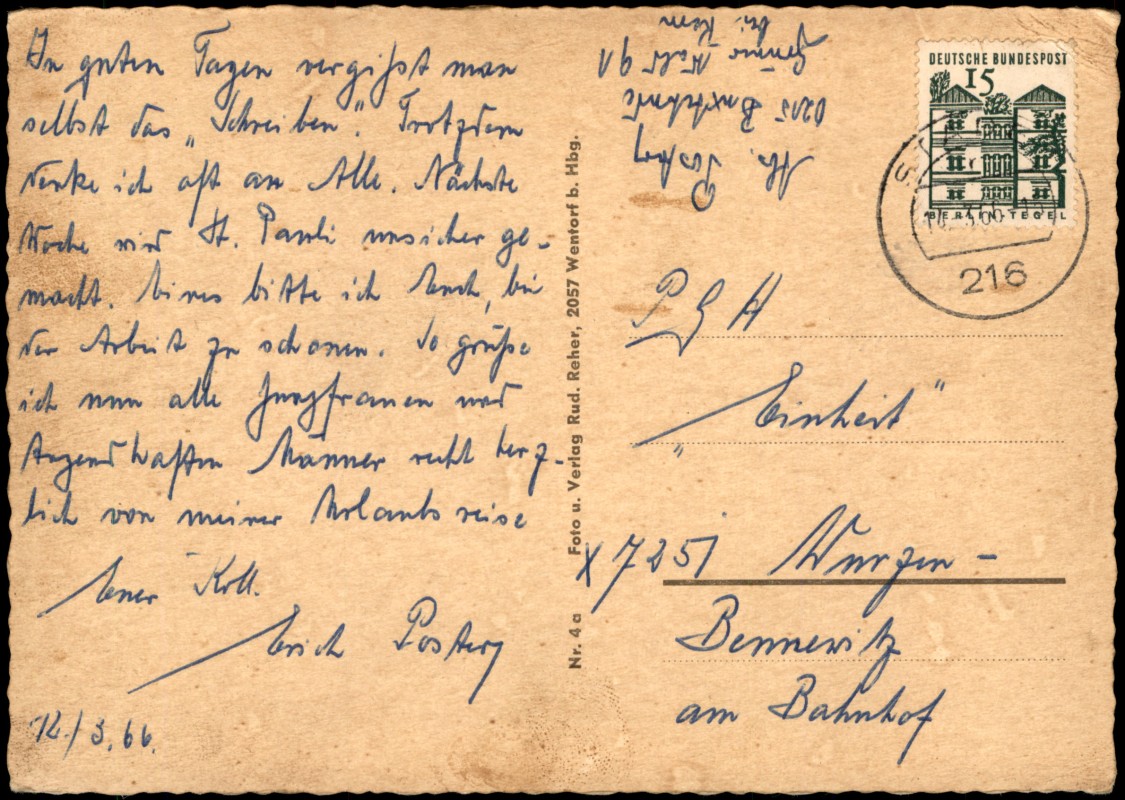 In guten Tagen vergißt man
selbst das „Schreiben". Trotzdem
denke ich oft an Alle. Nächste
Woche wird St. Pauli unsicher ge-
macht. Eines bitte ich Euch, bei
der Arbeit zu schonen. So grüße
ich nun alle Jungfrauen und
tugendhaften Männer recht herz-
lich von meiner Urlaubsreise
Euer Koll.
Erich Postery
12/3.66.
Nr. 4a Foto u. Verlag Rud. Reher, 2057 Wentorf b. Hbg.
Abs. Postery
Buxtehude
91
bei
DEUTSCHE BUNDESPOST
15
BERLIN-TEGEL
216
PGH
„Einheit"
X 7251 Wurzen-
Bennewitz
am Bahnhof